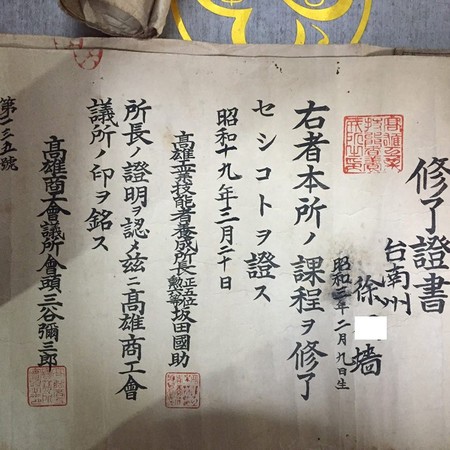 修了證書
台南州
徐 墻
昭和三年二月九日生
右者本所ノ課程ヲ修了
セシコトヲ證ス
昭和十九年三月二十日
高雄工業技能者養成所長 正五位 勲六等 坂田國助
所長ノ證明ヲ認メ茲ニ高雄商工會
議所ノ印ヲ銘ス
高雄商工會議所會頭三谷彌三郎
第一三五號